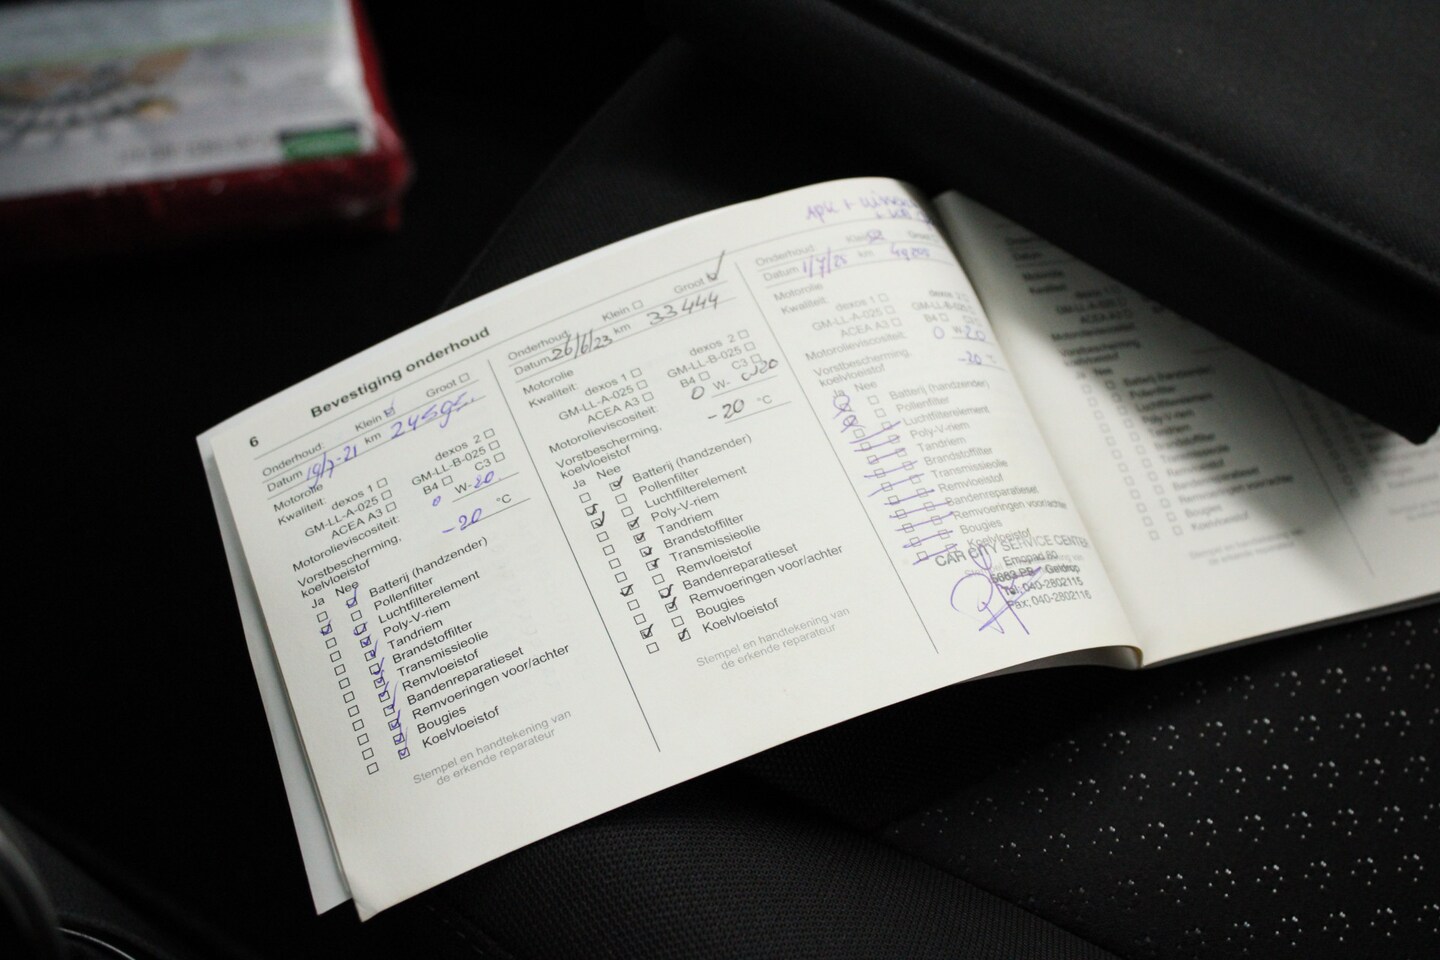 6
Bevestiging onderhoud
Onderhoud: Klein Groot
Datum 19/7-21 km
Motorolie
Kwaliteit: dexos 1 dexos 2
GM-LL-A-025 GM-LL-B-025
ACEA A3 B4 C3
Motorolieviscositeit: 0 W- 20
Vorstbescherming, koelvloeistof -20 °C
Ja Nee
Batterij (handzender)
Pollenfilter
Luchtfilterelement
Poly-V-riem
Tandriem
Brandstoffilter
Transmissieolie
Remvloeistof
Bandenreparatieset
Remvoeringen voor/achter
Bougies
Koelvloeistof
Stempel en handtekening van
de erkende reparateur
Onderhoud: Klein Groot
Datum 26/6/23 km 33444
Motorolie
Kwaliteit: dexos 1 dexos 2
GM-LL-A-025 GM-LL-B-025
ACEA A3 B4 C3
Motorolieviscositeit: 0 W-
Vorstbescherming,
koelvloeistof -20 °C
Ja Nee
Batterij (handzender)
Pollenfilter
Luchtfilterelement
Poly-V-riem
Tandriem
Brandstoffilter
Transmissieolie
Remvloeistof
Bandenreparatieset
Remvoeringen voor/achter
Bougies
Koelvloeistof
Stempel en handtekening van
de erkende reparateur
apk +
Onderhoud: Klein
Datum 1/7/25 km
Motorolie
Kwaliteit: dexos 1 dexos 2
GM-LL-A-025 GM-LL-B-025
ACEA A3 B4
Motorolieviscositeit: 0 W- 20
Vorstbescherming,
koelvloeistof -20 °C
Ja Nee
Batterij (handzender)
Pollenfilter
Luchtfilterelement
Poly-V-riem
Tandriem
Brandstoffilter
Transmissieolie
Remvloeistof
Bandenreparatieset
Remvoeringen voor/achter
Bougies
Koelvloeistof
CAR CITY SERVICE CENTER
Emopad 80
Geldrop
Tel: 040-2802115
Fax: 040-2802116